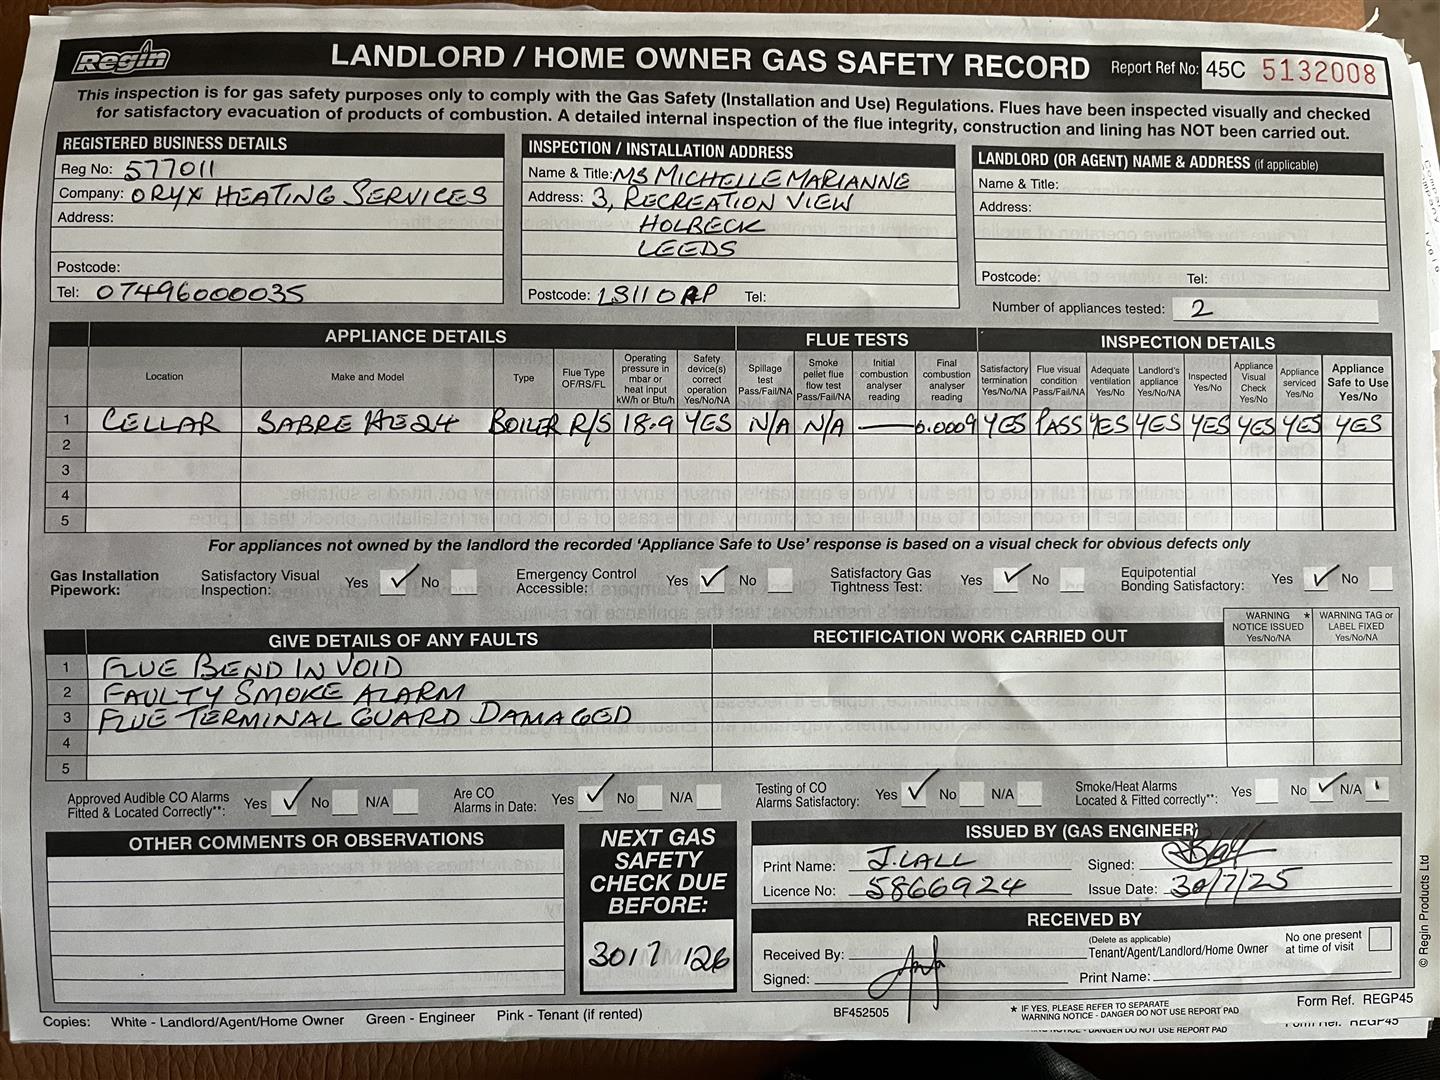 Regin
LANDLORD / HOME OWNER GAS SAFETY RECORD
Report Ref No: 45C 5132008
This inspection is for gas safety purposes only to comply with the Gas Safety (Installation and Use) Regulations. Flues have been inspected visually and checked
for satisfactory evacuation of products of combustion. A detailed internal inspection of the flue integrity, construction and lining has NOT been carried out.
REGISTERED BUSINESS DETAILS
Reg No: 577011
Company: ORYX HEATING SERVICES
Address:
Postcode:
Tel: 07496000035
INSPECTION / INSTALLATION ADDRESS
Name & Title: MS MICHELLE MARIANNE
Address: 3, RECREATION VIEW
HOLBECK
LEEDS
Postcode: LS11 0AP Tel:
LANDLORD (OR AGENT) NAME & ADDRESS (if applicable)
Name & Title:
Address:
Postcode: Tel:
Number of appliances tested: 2
APPLIANCE DETAILS FLUE TESTS INSPECTION DETAILS
Location
Make and Model
Type
Flue Type
OF/RS/FL
Operating
pressure in
mbar or
heat input
kW/h or Btu/h
Safety
device(s)
correct
operation
Yes/No/NA
Spillage
test
Pass/Fail/NA
Smoke
pellet flue
flow test
Pass/Fail/NA
Initial
combustion
analyser
reading
Final
combustion
analyser
reading
Satisfactory
termination
Yes/No/NA
Flue visual
condition
Pass/Fail/NA
Adequate
ventilation
Yes/No
Landlord's
appliance
Yes/No/NA
Inspected
Yes/No
Appliance
Visual
Check
Yes/No
Appliance
serviced
Yes/No
Appliance
Safe to Use
Yes/No
1 CELLAR SABRE HE24 BOILER R/S 18.9 YES N/A N/A — 0.0009 YES PASS YES YES YES YES YES YES
2
3
4
5
For appliances not owned by the landlord the recorded 'Appliance Safe to Use' response is based on a visual check for obvious defects only
Gas Installation
Pipework:
Satisfactory Visual
Inspection: Yes ✓ No
Emergency Control
Accessible: Yes ✓ No
Satisfactory Gas
Tightness Test: Yes ✓ No
Equipotential
Bonding Satisfactory: Yes ✓ No
GIVE DETAILS OF ANY FAULTS RECTIFICATION WORK CARRIED OUT
WARNING *
NOTICE ISSUED
Yes/No/NA
WARNING TAG or
LABEL FIXED
Yes/No/NA
1 FLUE BEND IN VOID
2 FAULTY SMOKE ALARM
3 FLUE TERMINAL GUARD DAMAGED
4
5
Approved Audible CO Alarms
Fitted & Located Correctly**: Yes ✓ No N/A
Are CO
Alarms in Date: Yes ✓ No N/A
Testing of CO
Alarms Satisfactory: Yes ✓ No N/A
Smoke/Heat Alarms
Located & Fitted correctly**: Yes No ✓ N/A
OTHER COMMENTS OR OBSERVATIONS
NEXT GAS
SAFETY
CHECK DUE
BEFORE:
30/7/26
ISSUED BY (GAS ENGINEER)
Print Name: J.LALL Signed:
Licence No: 5866924 Issue Date: 30/7/25
RECEIVED BY
Received By:
(Delete as applicable)
Tenant/Agent/Landlord/Home Owner
No one present
at time of visit
Signed: Print Name:
© Regin Products Ltd
Copies: White - Landlord/Agent/Home Owner Green - Engineer Pink - Tenant (if rented)
BF452505
* IF YES, PLEASE REFER TO SEPARATE
WARNING NOTICE - DANGER DO NOT USE REPORT PAD
Form Ref. REGP45
WARNING NOTICE - DANGER DO NOT USE REPORT PAD
Form Ref. REGP45